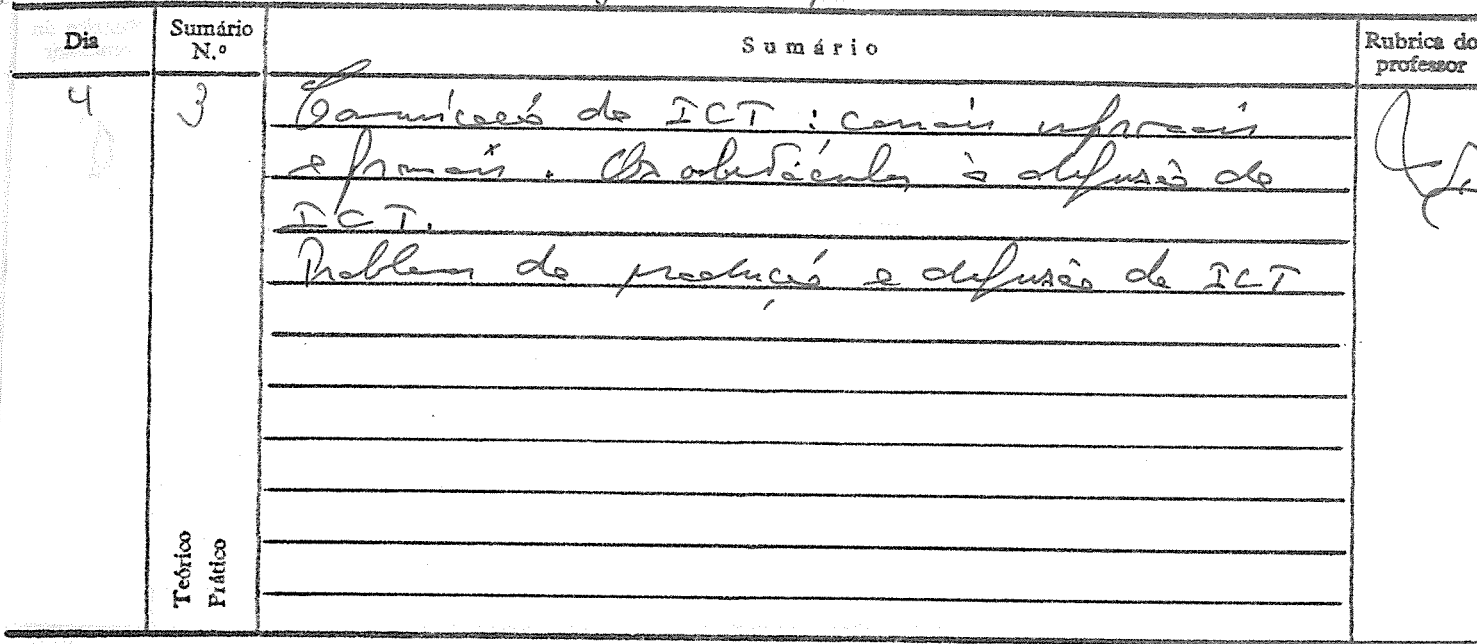 Dia
Sumário N.º
Sumário
Rubrica do professor
4
3
Comunicação da ICT : canais informais
e formais. Os obstáculos à difusão da
ICT.
Problemas da produção e difusão da ICT
Teórico
Prático